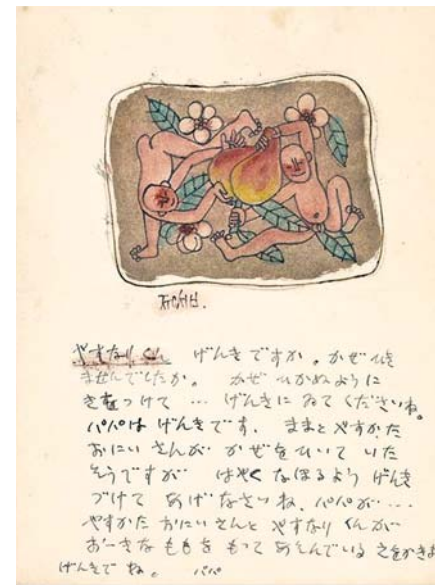 ㅈㅜㅇㅅㅓㅂ
やすなりくん げんきですか。かぜひき
ませんでしたか。 かぜひかぬように
きをつけて … げんきにゐてくださいね。
パパは げんきです. ままと やすかた
おにいさんが かぜをひいて いた
そうですが はやく なほるよう げんき
づけて あげなさいね. パパが…
やすかた おにいさんと やすなりくんが
おーきな ももを もって あそんでいる
げんきでね。 パパ